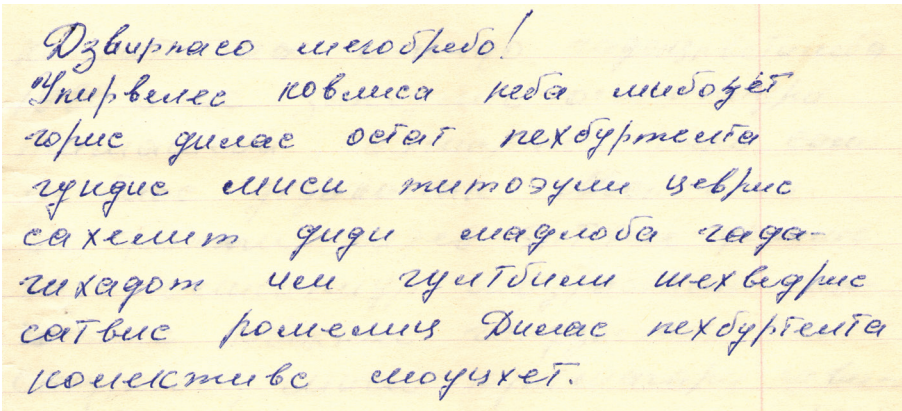 Дзвирпасо мегобребо!
Упирвелес ковлиса неба мибоцет
горис дилас остат пехбуртелта
гундис миси титоэули цеврис
сахелит диди мадлоба гада-
гихадот им гултбили шехведрис
сатвис ромелиц Дилас пехбуртелта
колективс моуцхет.